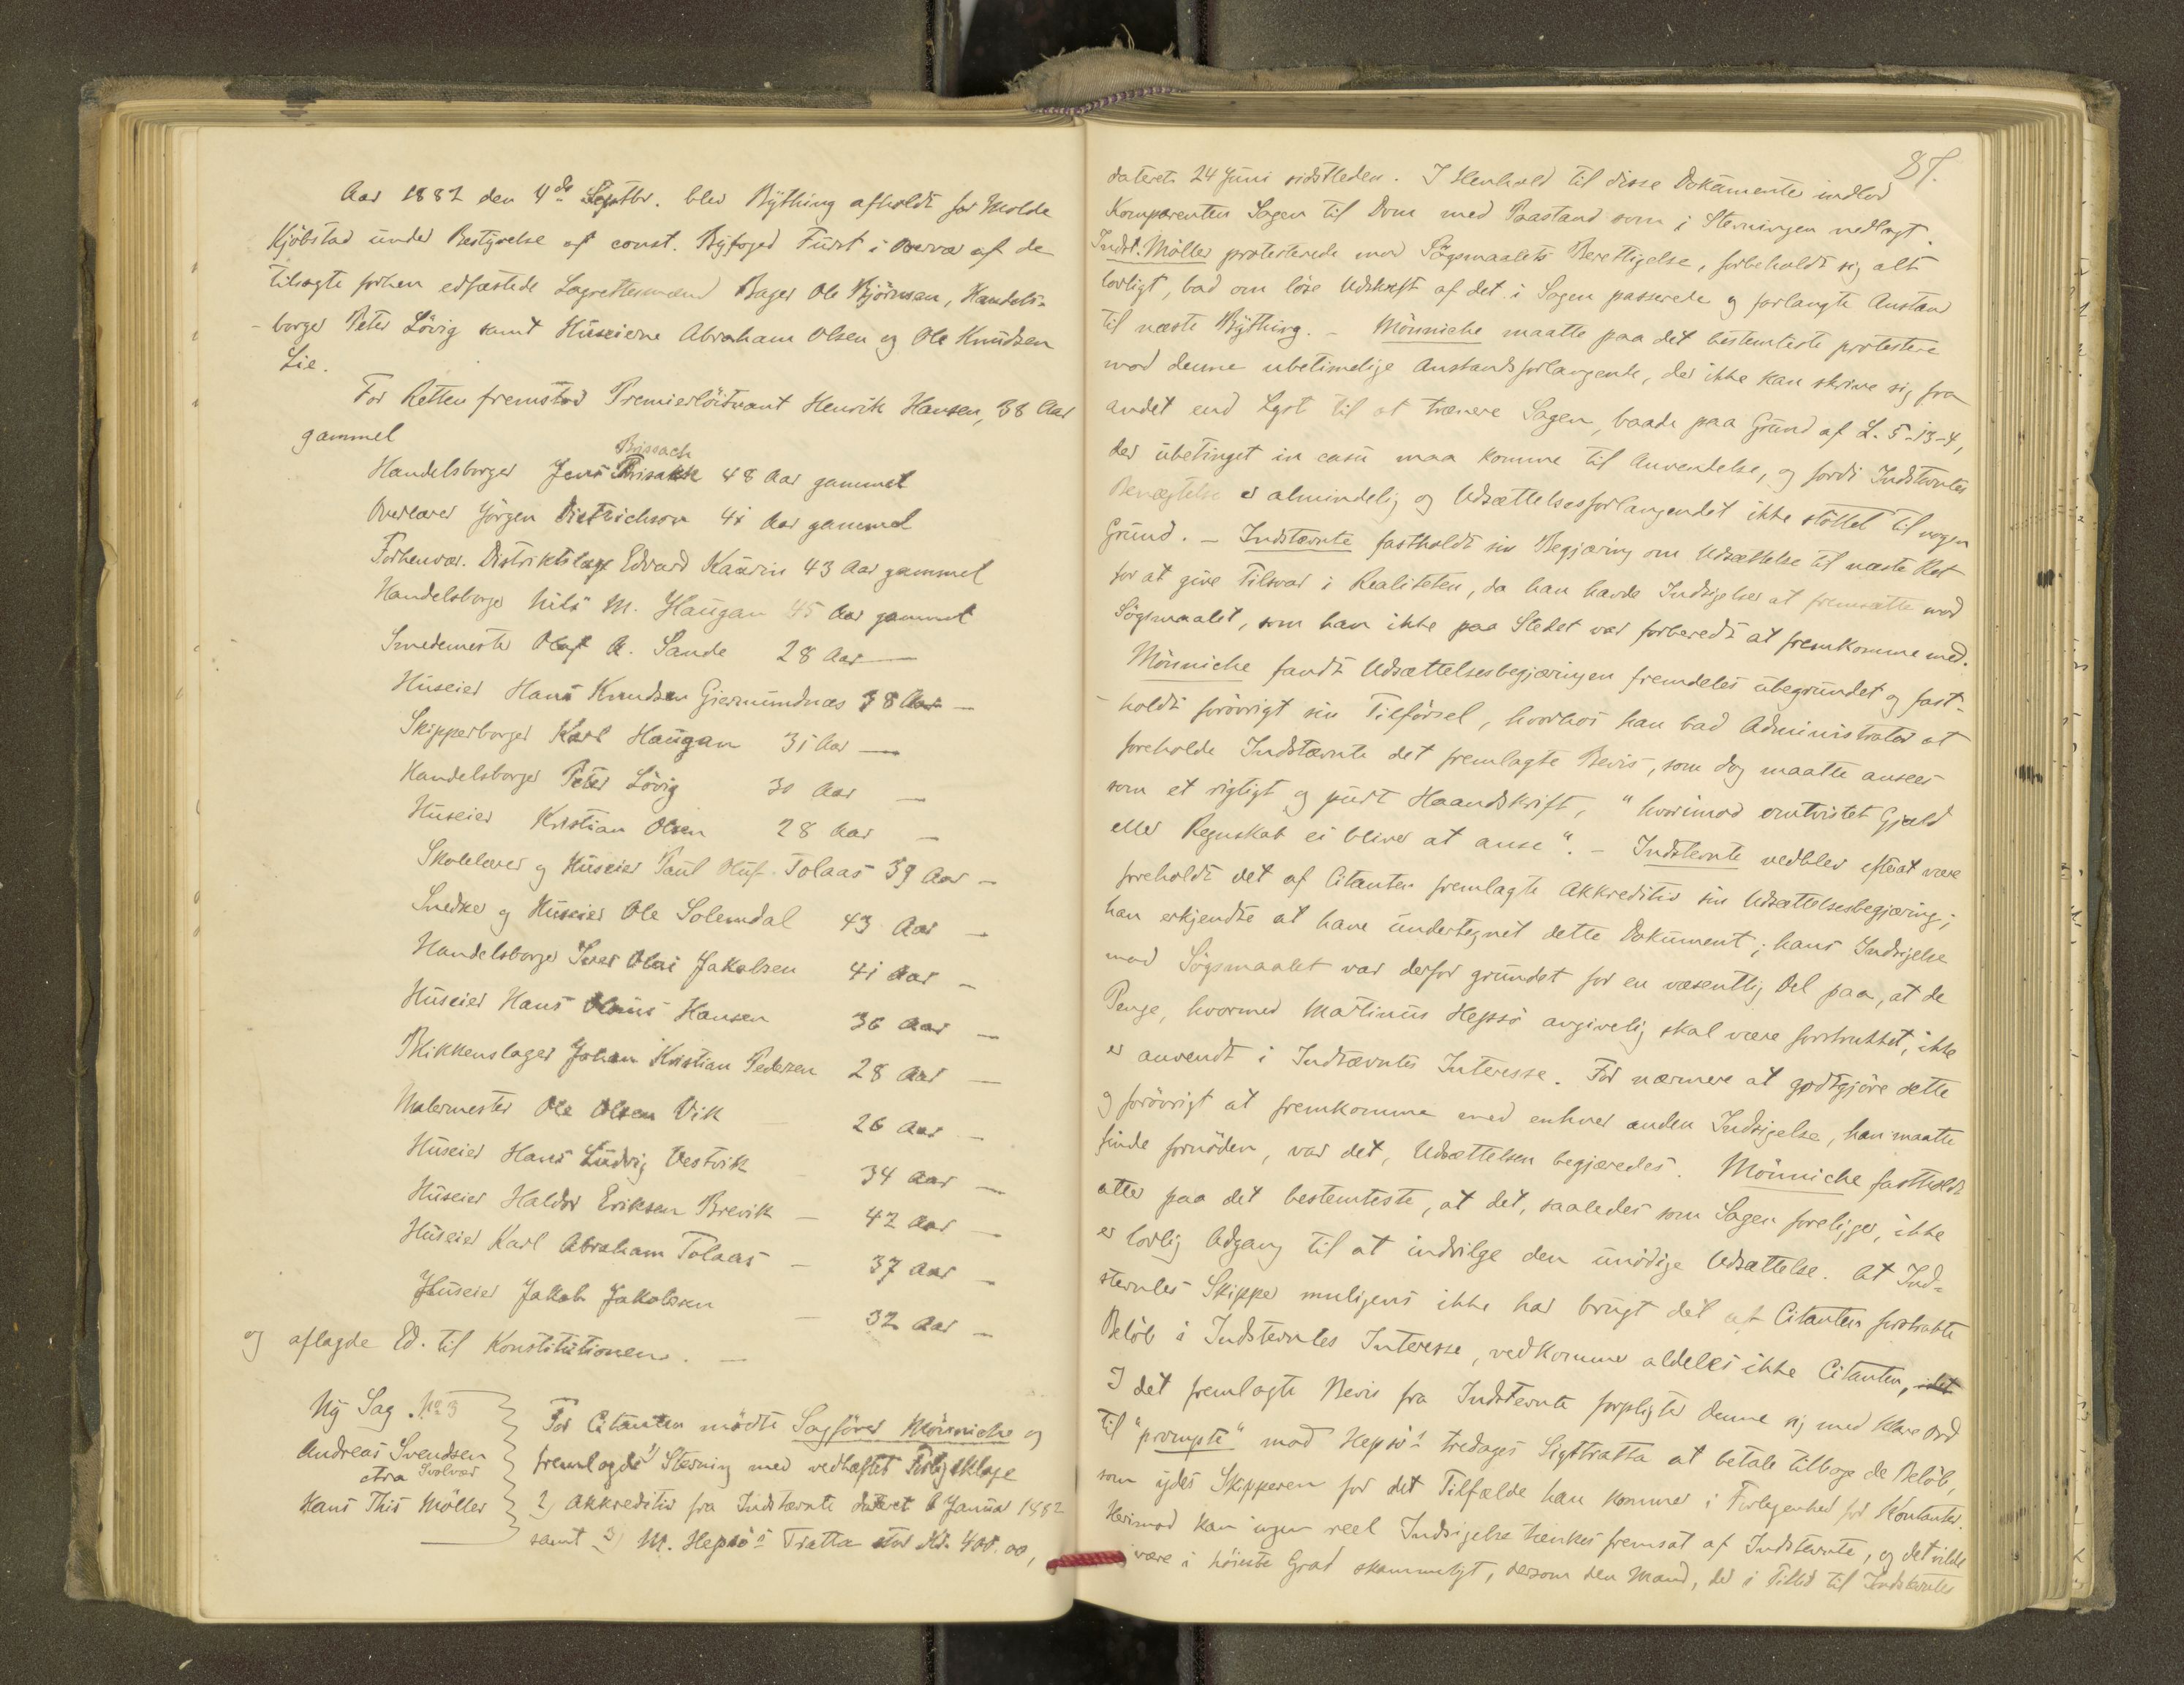 Aar 1882 den 4de Septbr. blev Bything afholdt for Molde
Kjöbstad under Bestyrelse af const. Byfoged Fürst i Overvær af de
tilsagte forhen edfæstede Lagrettesmænd Bager Ole Björnsen, Handels-
-borger Peter Lövig samt Huseierne Abraham Olsen og Ole Knudsen
Lie.
For Retten fremstod Premierlöitnant Henrik Hansen, 38 Aar
gammel
Brissach
Handelsborger Jens 48 Aar gammel
Overlærer Jörgen Dietrichson 41 Aar gammel
Forhenvær. Distriktslæge Edvard Kaurin 43 Aar gammel
Handelsborger Nils M. Haugan 45 Aar gammel
Smedemester Olaf A. Sande 28 Aar —
Huseier Hans Knudsen Gjermundnæs 38 Aar —
Skipperborger Karl Haugan 31 Aar —
Handelsborger Peter Lövig 30 Aar —
Huseier Kristian Olsen 28 Aar —
Skolelærer og Huseier Paul Oluf Tolaas 39 Aar —
Snedker og Huseier Ole Solemdal 43 Aar —
Handelsborger Iver Olai Jakobsen 41 Aar —
Huseier Hans Hansen 36 Aar —
Blikkenslager Johan Kristian Pedersen 28 Aar —
Malermester Ole Olsen Vik 26 Aar —
Huseier Hans Ludvig Vestvik 34 Aar —
Huseier Haldor Eriksen Brevik — 42 Aar —
Huseier Karl Abraham Tolaas — 37 Aar —
Huseier Jakob Jakobsen — 32 Aar —
og aflagde Ed til Konstitutionen. —
Ny Sag No 3
Andreas Svendsen
Svolvær
ctra
Hans This Möller
For Citanten mödte Sagförer Mönniche og
fremlagde 1) Stevning med vedhæftet Forligsklage
2) Akkreditiv fra Indstævnte dateret 6 Januar 1882
samt 3) M. Hepsö's Tratta stor Kr. 400.00,
87.
dateret 24 Juni sidstleden. I Henhold til disse Dokumenter indlod
Komparenten Sagen til Dom med Paastand som i Stevningen nedlagt.
Indst. Möller protesterede mod Sögsmaalets Berettigelse, forbeholdt sig alt
lovligt, bad om löse Udskrift af det i Sagen passerede og forlangte Anstand
til næste Bything. — Mönniche maatte paa det bestemteste protestere
mod denne ubetimelige Anstandsforlangende, der ikke kan skrive sig fra
andet end Lyst til at trænere Sagen, baade paa Grund af L. 5-13-4,
der ubetinget in casu maa komme til Anvendelse, og fordi Indstevntes
Benægtelse er almindelig og Udsættelsesforlangendet ikke stöttet til nogen
Grund. — Indstævnte fastholdt sin Begjæring om Udsættelse til næste Ret
for at give Tilsvar i Realiteten, da han havde Indsigelser at fremsætte mod
Sögsmaalet, som han ikke paa Stedet var forberedt at fremkomme med.
Mönniche fandt Udsættelsesbegjæringen fremdeles ubegrundet og fast-
-holdt forövrigt sin Tilförsel, hvorhos han bad Administrator at
foreholde Indstævnte det fremlagte Bevis, som dog maatte ansees
som et rigtigt og purt Haandskrift, "hvorimod omtvistet Gjæld
eller Regnskab ei bliver at anse". — Indstevnte vedblev efterat være
foreholdt det af Citanten fremlagte Akkreditiv sin Udsættelsesbegjæring;
han erkjendte at have undertegnet dette Dokument; hans Indsigelse
mod Sögsmaalet var derfor grundet for en væsentlig Del paa, at de
Penge, hvormed Martinus Hepsö angivelig skal være forstrukket, ikke
er anvendt i Indstævntes Interesse. For nærmere at godtgjöre dette
og forövrigt at fremkomme med enhver anden Indsigelse, han maatte
finde fornöden, var det, Udsættelsen begjæredes. Mönniche fastholdt
atter paa det bestemteste, at det, saaledes som Sagen foreligger, ikke
er lovlig Adgang til at indvilge den unödige Udsættelse. At Ind-
stevntes Skipper muligens ikke har brugt det af Citanten forstrakte
Belöb i Indstevntes Interesse, vedkommer aldeles ikke Citanten,
I det fremlagte Bevis fra Indstevnte forpligter denne sig med klare Ord
til "prompte" mod Hepsö's tredages Sigttratta at betale tilbage de Belöb,
som ydes Skipperen for det Tilfælde han kommer i Forlegenhed for Kontanter.
Herimod kan ingen reel Indsigelse tænkes fremsat af Indstevnte, og det vilde
være i höieste Grad skammeligt, dersom den Mand, der i Tillid til Indstevntes